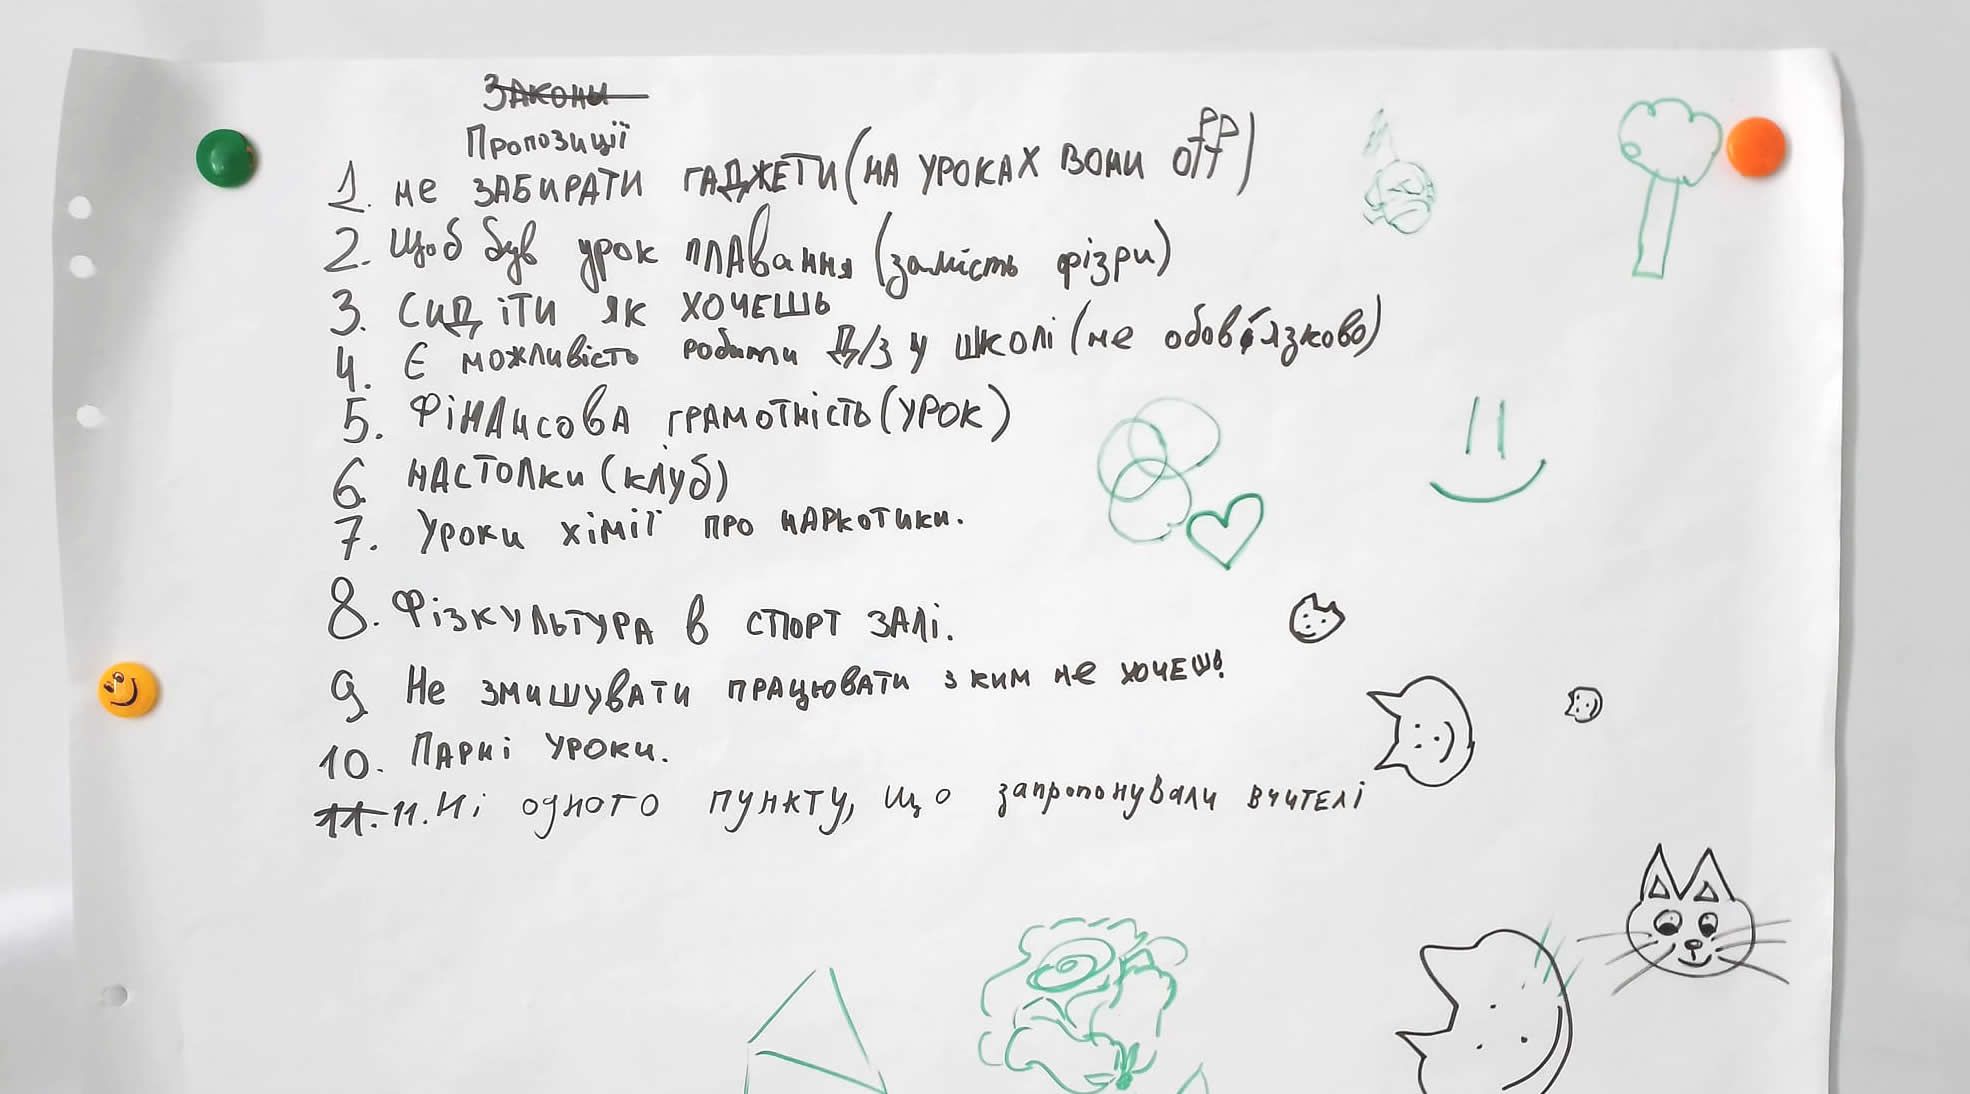 Закони
Пропозиції
1. не ЗАБИРАТИ ГАДЖЕТИ (НА УРОКАХ ВОНИ OFF)
2. Щоб був урок плавання (замість фізри)
3. СИДІТИ ЯК ХОЧЕШЬ
4. Є можливість робити Д/З у школі (не обов'язково)
5. Фінансова грамотність (УРОК)
6. НАСТОЛКИ (клуб)
7. Уроки хімії про наркотики.
8. Фізкультура в спорт залі.
9 Не змишувати працювати з ким не хочешь!
10. Парні уроки.
11. 11. Ні одного пункту, що запропонували вчителі